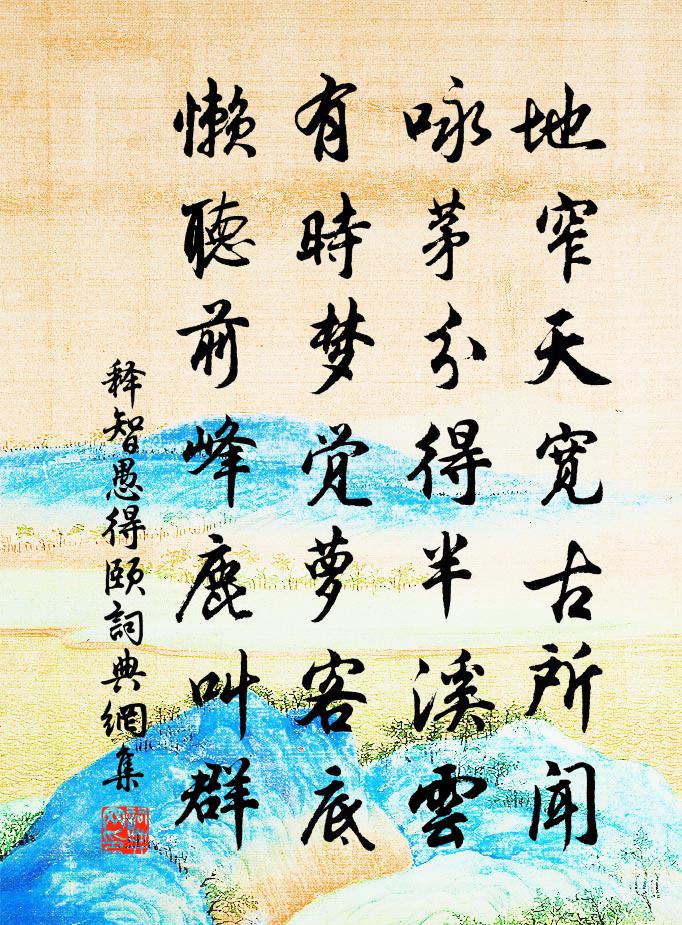 地窄天宽古所闻
咏茅分得半溪雲
有時梦觉萝客底
懒聽前峰鹿叫群
释智愚得颐詞典網集